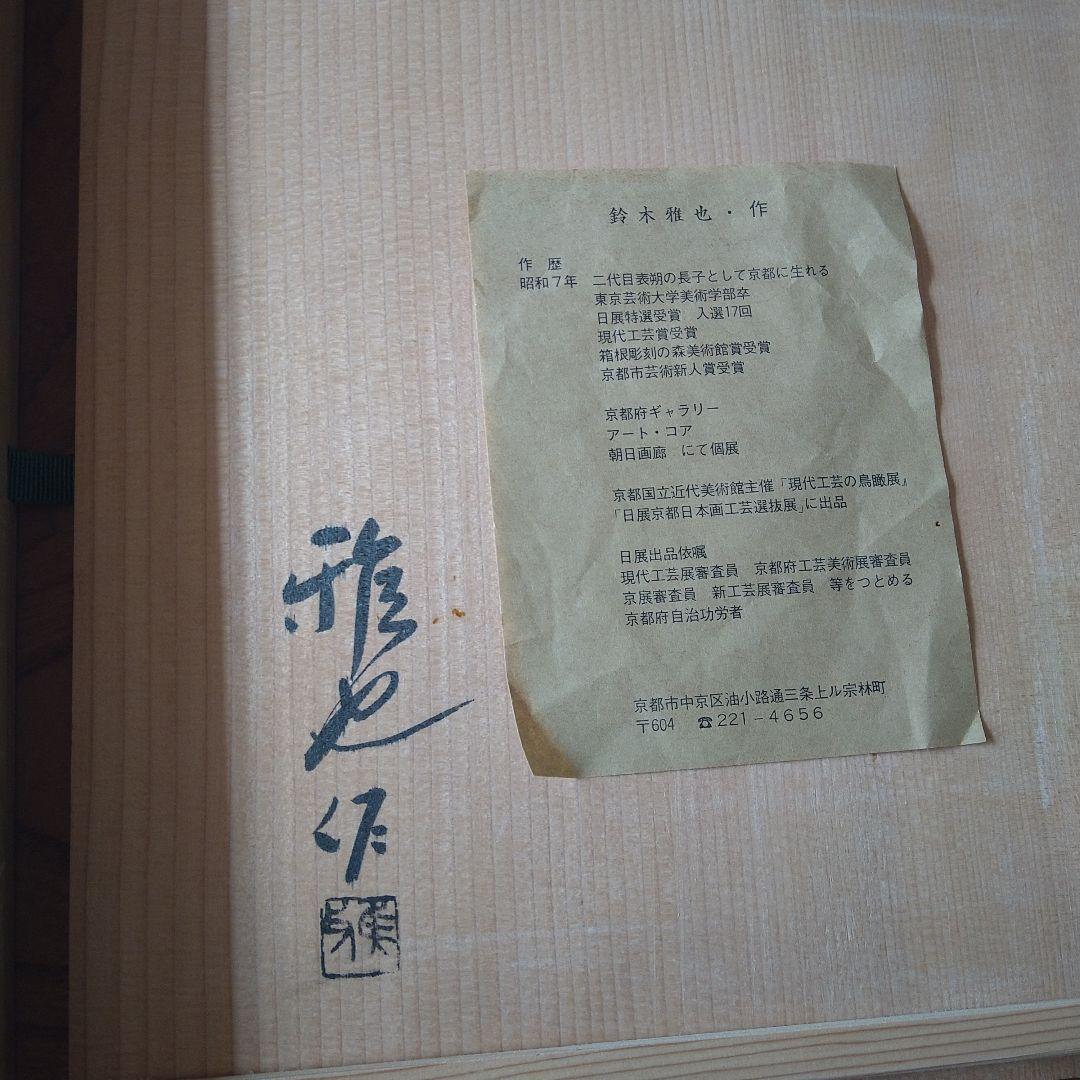 鈴木雅也・作
作歴
昭和7年 二代目表朔の長子として京都に生れる
東京芸術大学美術学部卒
日展特選受賞 入選17回
現代工芸賞受賞
箱根彫刻の森美術館賞受賞
京都市芸術新人賞受賞
京都府ギャラリー
アート・コア
朝日画廊 にて個展
京都国立近代美術館主催『現代工芸の鳥瞰展』
「日展京都日本画工芸選抜展」に出品
日展出品依嘱
現代工芸展審査員 京都府工芸美術展審査員
京展審査員 新工芸展審査員 等をつとめる
京都府自治功労者
京都市中京区油小路通三条上ル宗林町
〒604 ☎221-4656
雅也作
雅